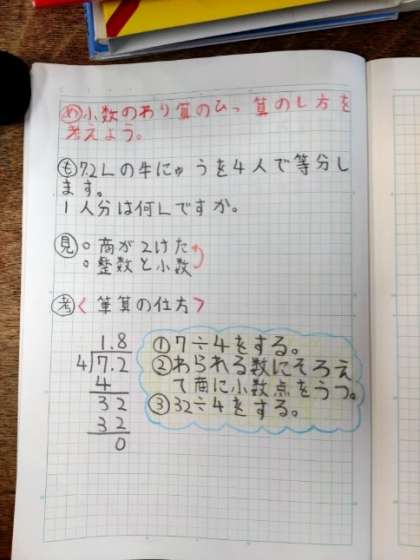 め小数のわり算のひっ算のし方を
考えよう。
も7.2Lの牛にゅうを4人で等分し
ます。
1人分は何Lですか。
見 。商が2けた
。整数と小数
考<筆算の仕方>
1.8
4)7.2
4
32
32
0
①7÷4をする。
②わられる数にそろえ
て商に小数点をうつ。
③32÷4をする。